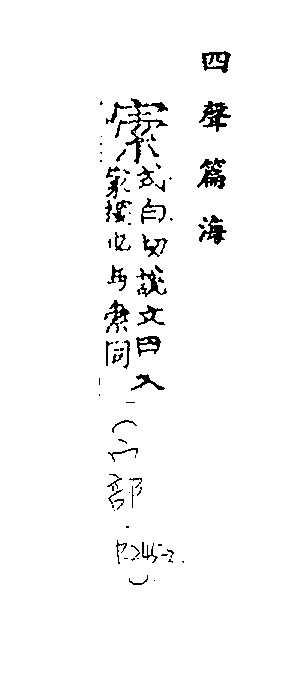 四聲篇海
𡩡
式白切說文曰入
家搜也与索同
(宀部
P.245-2.)